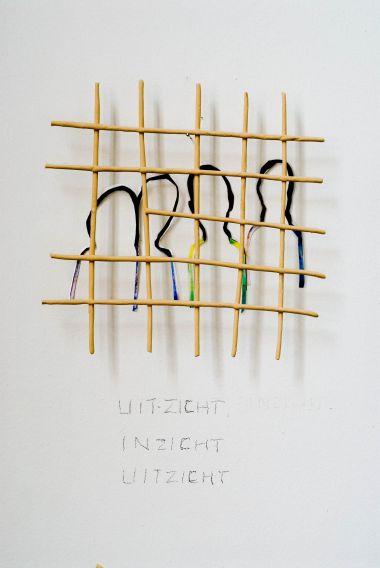 UIT-ZICHT,
INZICHT
UITZICHT